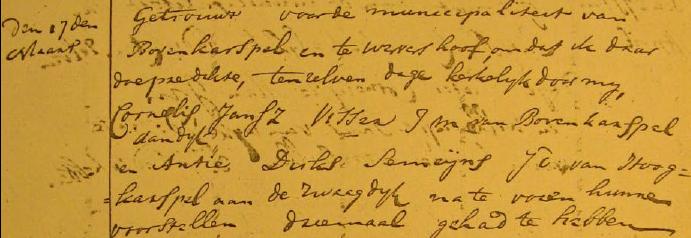 Den 17 den
Maart
Getrouwt voor de municipaliteit van
Bovenkarspel en te wervershoof, omdat ik daar
doe predikte, ten zelven dage kerkelijk door my,
Cornelis Jansz Visser J m van Bovenkarspel
aandyk,
en Antie Dirks Semeijns J d van Hoog=
=karspel aan de Zwaagdyk na te voren hunne
voorstellen driemaal gehad te hebben